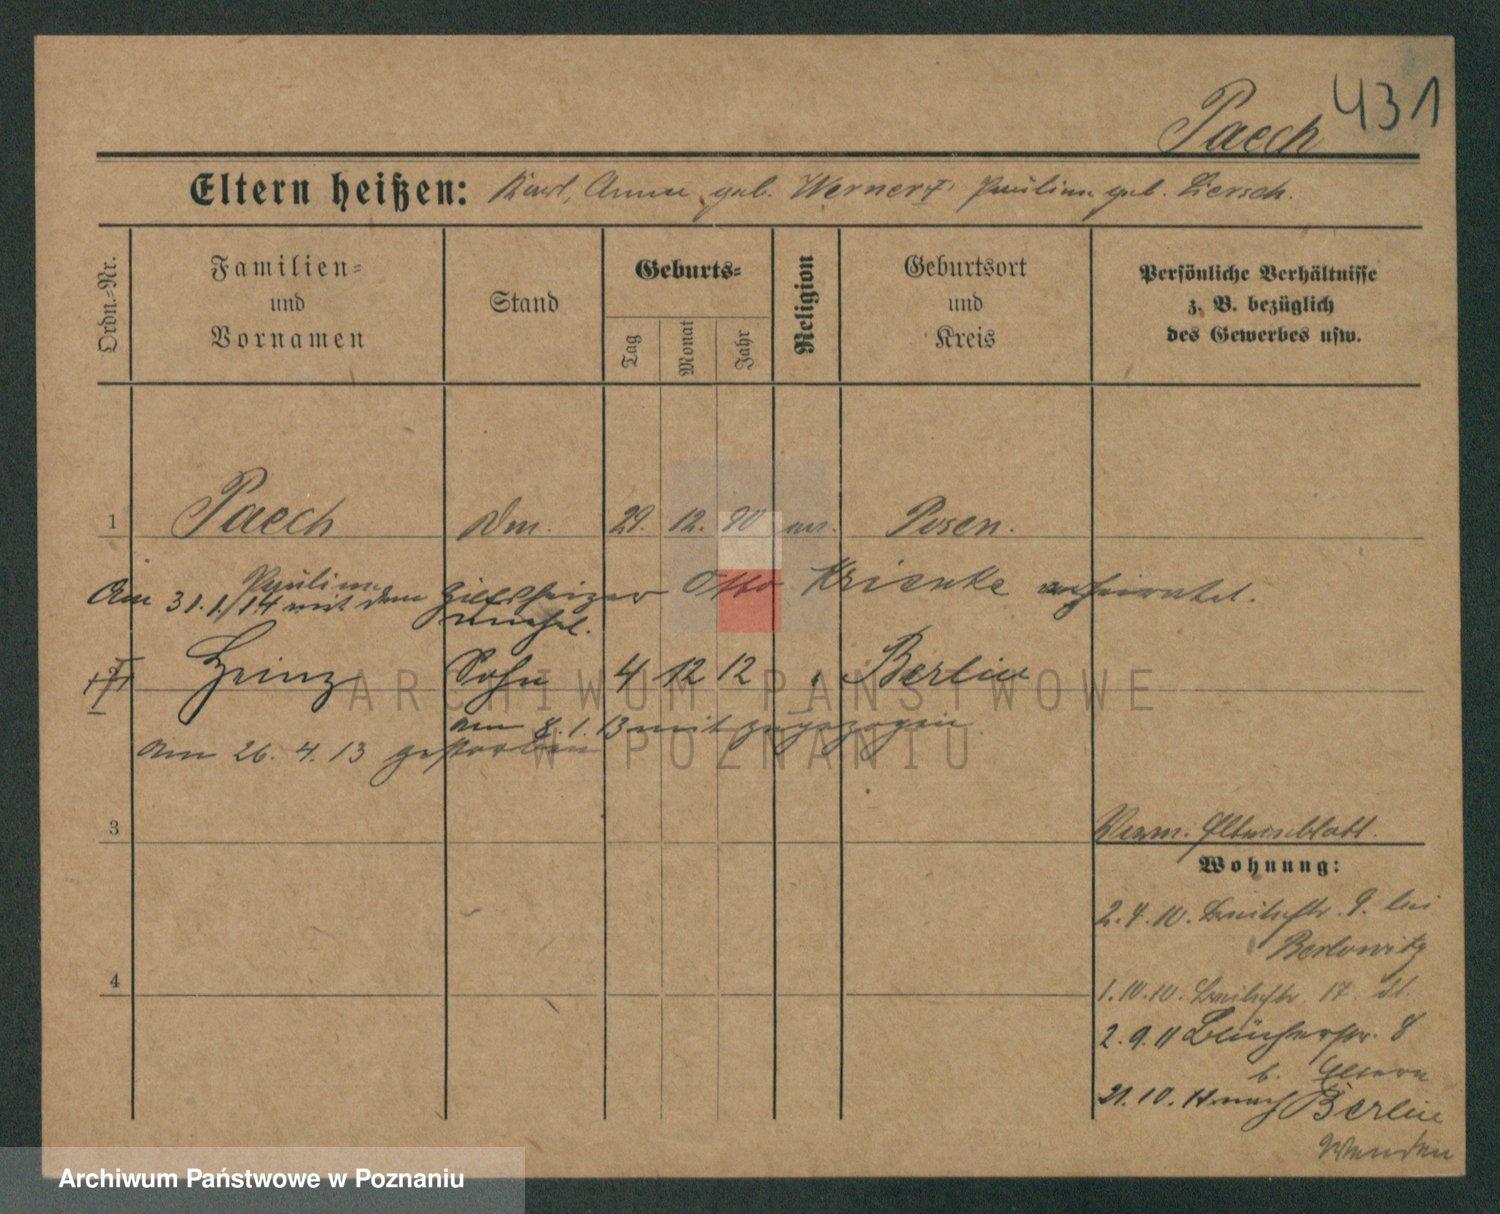 431
Paech
Eltern heißen: Karl, Anna geb. Werner †, Pauline geb. Liersch.
Ordn.-Nr.
Familien-
und
Vornamen
Stand
Geburts-
Tag
Monat
Jahr
Religion
Geburtsort
und
Kreis
Persönliche Verhältnisse
z. B. bezüglich
des Gewerbes usw.
1 Paech 29. 12. 90 Posen.
Pauline
Am 31.1./14 mit dem Hilfsheizer Otto Krienke verheiratet.
Heinz Sohn 4 12 12 Berlin
am 8.1.13 mit zugezogen
am 26.4.13 gestorben
ARCHIWUM PAŃSTWOWE
W POZNANIU
3
Verm. Elternblatt.
Wohnung:
2.4.10. 9. bei
4
1.10.10. 17.
2.9.11 Blücherstr. 8
b. Eltern
21.10.11 nach Berlin
Archiwum Państwowe w Poznaniu